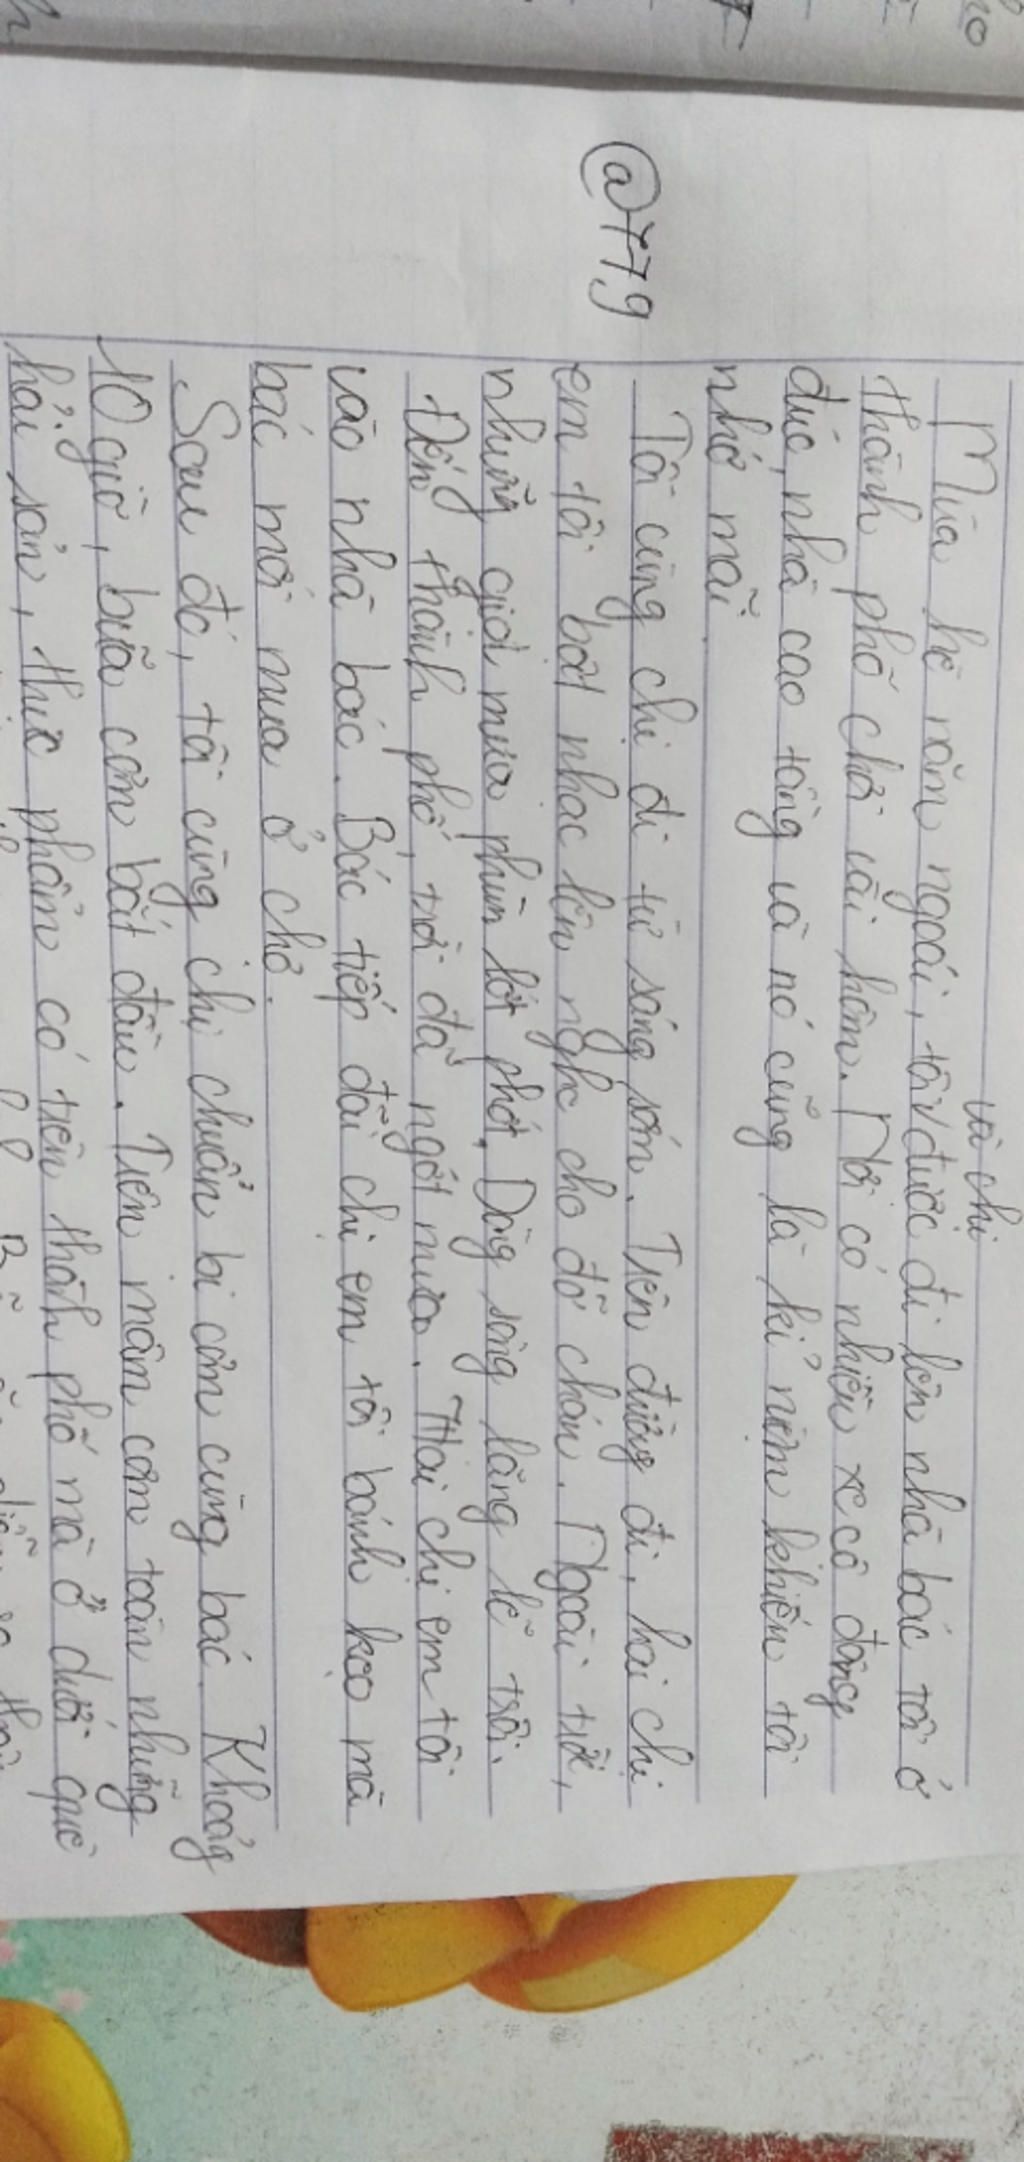 và chị
Mùa hè năm ngoái, tôi √ được đi lên nhà bác tôi ở
thành phố chơi vài hôm. Nơi có nhiều xe cô đông
đúc, nhà cao tầng và nó cũng là kỉ niệm khiến tôi
nhớ mãi.
Tôi cùng chị đi từ sáng sớm. Trên đường đi, hai chị
em tôi bật nhạc lên nghe cho đỡ chán. Ngoài trời,
những giọt mưa phùn lớt phớt. Dòng sông lặng lẽ trôi.
Đến thành phố, trời đã ngớt mưa. Hai chị em tôi
vào nhà bác. Bác tiếp đãi chị em tôi bánh kẹo mà
bác mới mua ở chợ.
Sau đó, tôi cùng chị chuẩn bị cơm cùng bác. Khoảng
10 giờ, bữa cơm bắt đầu. Trên mâm cơm toàn những
hải sản, thực phẩm có trên thành phố mà ở dưới quê
@779